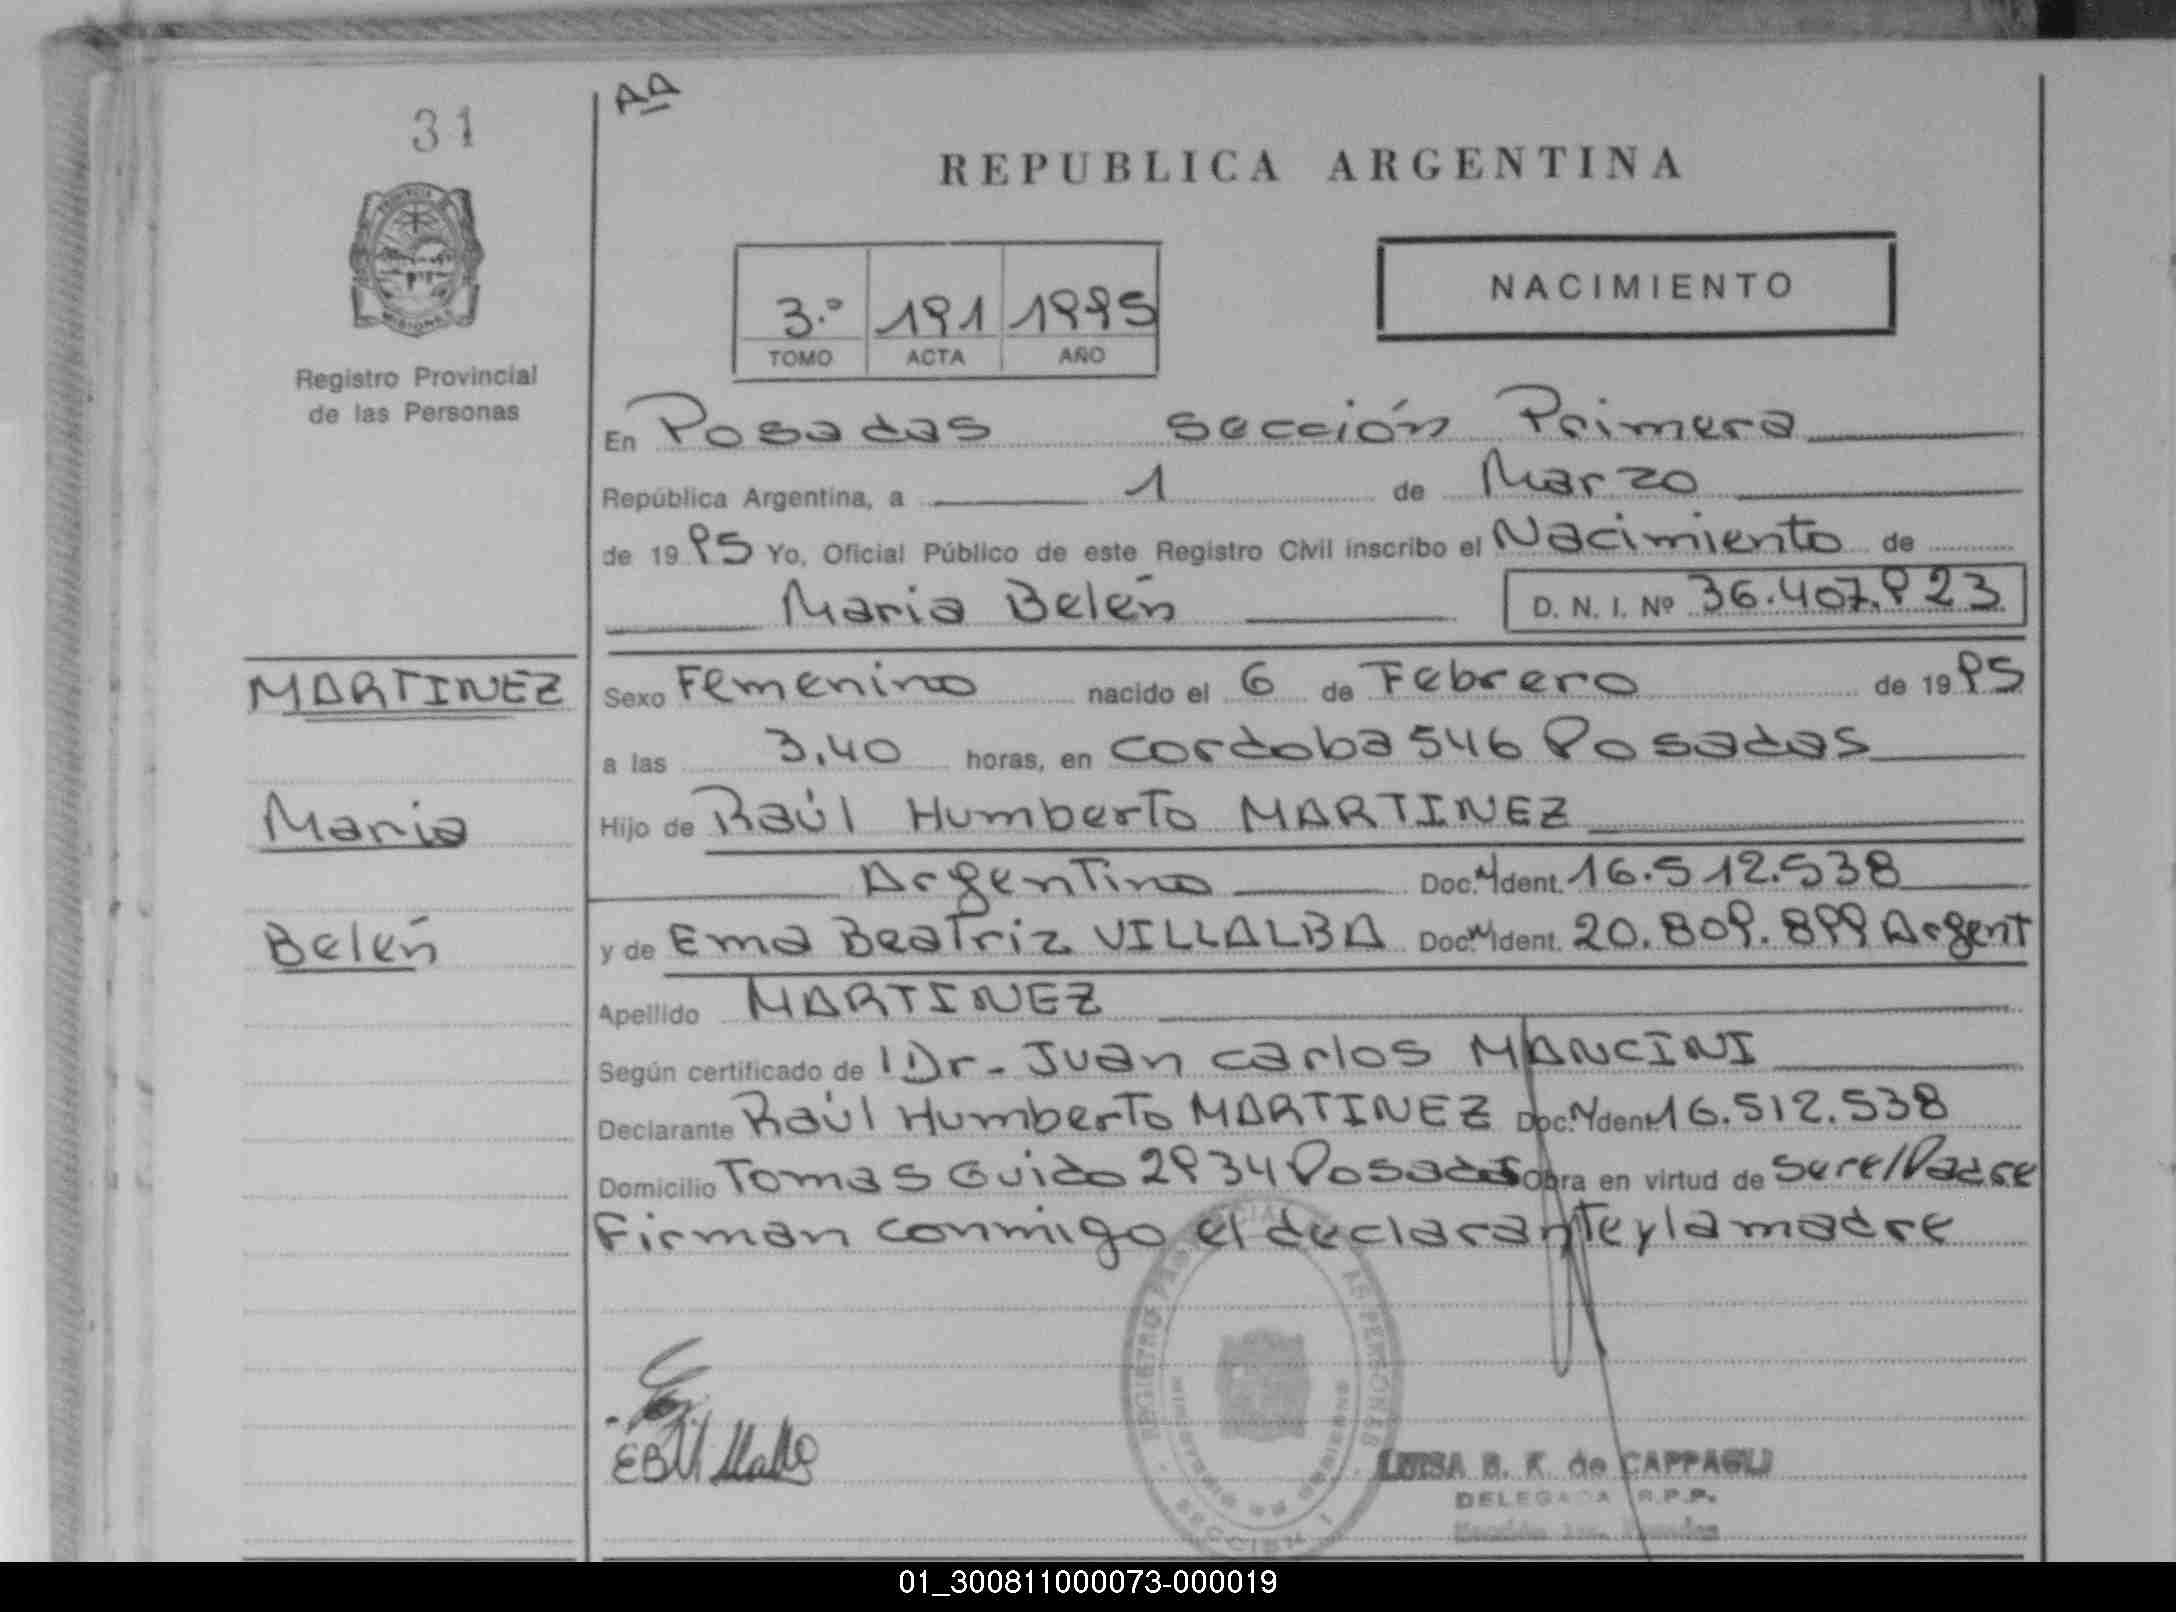 31
AA
REPUBLICA ARGENTINA
3.º 191 1995
TOMO ACTA AÑO
NACIMIENTO
Registro Provincial
de las Personas
En Posadas sección Primera
República Argentina, a 1 de Marzo
de 1995 Yo, Oficial Público de este Registro Civil inscribo el Nacimiento de
Maria Belén D. N. I. Nº 36.407.923
MARTINEZ
Sexo Femenino nacido el 6 de Febrero de 1995
a las 3,40 horas, en cordoba 546 Posadas
Maria
Hijo de Raúl Humberto MARTINEZ
Argentino Doc. Ident. 16.512.538
Belén
y de Ema Beatriz VILLALBA Doc. Ident. 20.809.899 Argent
Apellido MARTINEZ
Según certificado de Dr. Juan carlos MANCINI
Declarante Raúl Humberto MARTINEZ Doc. Ident 16.512.538
Domicilio Tomas Guido 2934 Posadas Obra en virtud de ser el Padre
Firman conmigo el declarante y la madre
EBVillalba
LUISA B. K. de CAPPAGLI
DELEGADA R.P.P.
REGISTRO PROVINCIAL DE LAS PERSONAS
SECCION 1
01_300811000073-000019